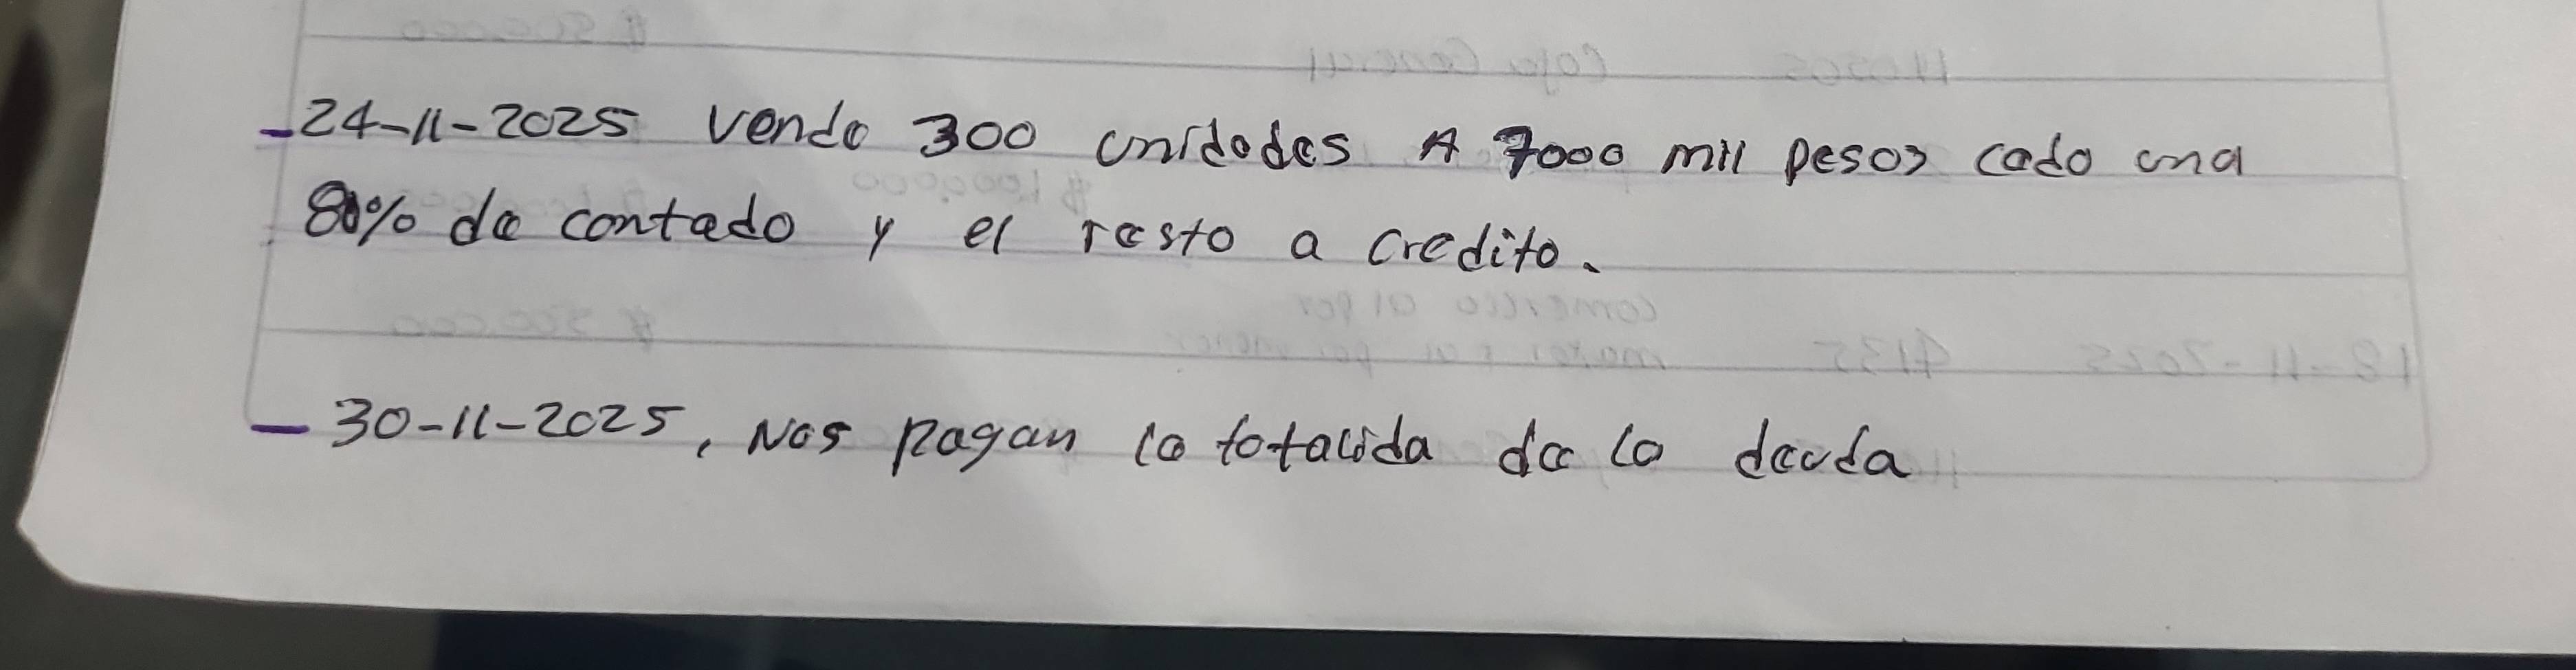 -24-11-2025 vendo 300 unidades A 7000 mil pesos cada una
80% de contado y el resto a credito.
- 30-11-2025, Nos pagan la totalida de la deuda